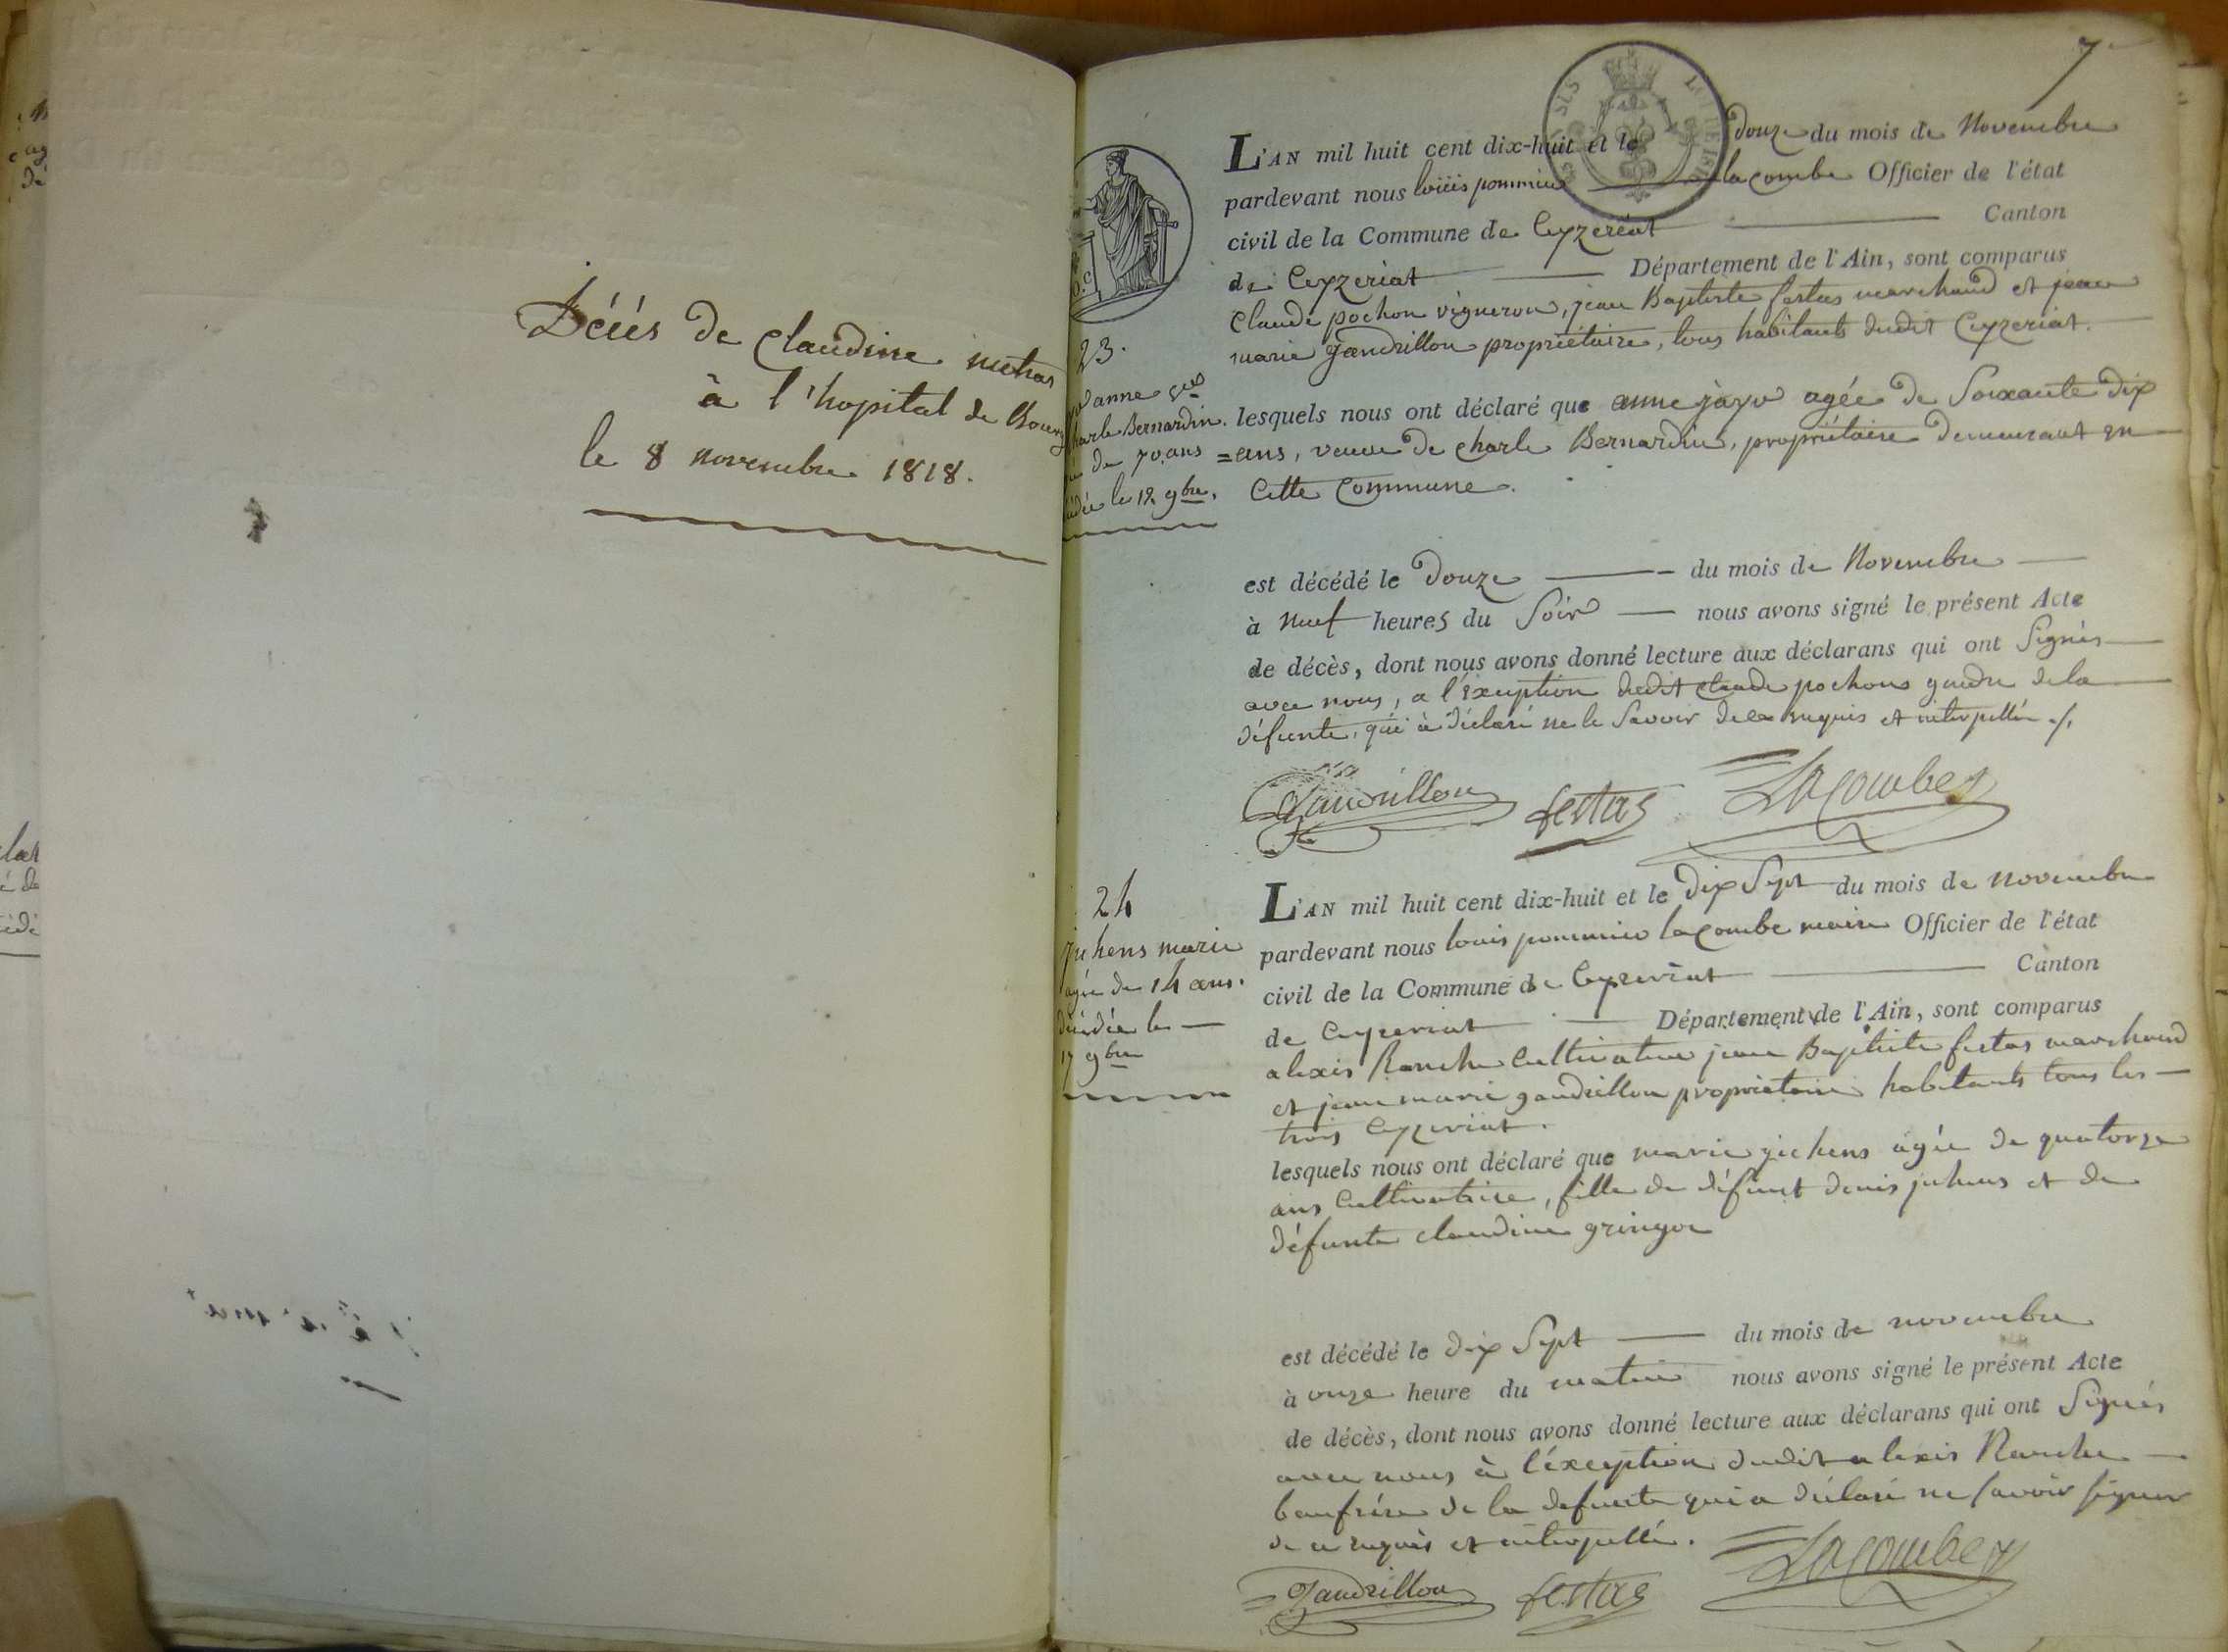 Décés de claudine metras
à l'hopital de Bourg
le 8 novembre 1818.
7
L'AN mil huit cent dix-huit et le douze du mois de Novembre
pardevant nous loüis pommier lacombe Officier de l'état
civil de la Commune de Ceyzeriat Canton
de Ceyzeriat Département de l'Ain, sont comparus
Claude pochon vigneron, jean Baptiste festas marchand et jean
marie gandrillon propriétaire, tous habitants dudit Ceyzeriat.
23.
anne Ve
charle Bernardin.
de 70 ans
le 12 9bre.
lesquels nous ont déclaré que anne jayr agée de Soixante dix
=ans, veuve de charle Bernardin, propriétaire demeurant en
Cette Commune.
est décédé le douze du mois de Novembre
à neuf heures du Soir nous avons signé le présent Acte
de décès, dont nous avons donné lecture aux déclarans qui ont Signés
avec nous, a l'éxception dudit claude pochons gendre dela
défunte, qui à déclaré ne le Savoir de ce requis et interpellé ./.
Gandrillon festas Lacombe
24
juhens marie
agée de 14 ans.
décédée le
17 9bre
L'AN mil huit cent dix-huit et le dix Sept du mois de novembre
pardevant nous louis pommier lacombe maire Officier de l'état
civil de la Commune de Ceyzeriat Canton
de Ceyzeriat Département de l'Ain, sont comparus
alexis Ranche Cultivateur jean Baptiste festas marchand
et jean marie gandrillon propriétaire habitants tous les
trois Ceyzeriat.
lesquels nous ont déclaré que marie juhens agée de quatorze
ans Cultivatrice, fille de défunt denis juhens et de
défunte claudine gringoz
est décédé le dix Sept du mois de novembre
à onze heure du matin nous avons signé le présent Acte
de décès, dont nous avons donné lecture aux déclarans qui ont Signés
avec nous à l'éxception dudit alexis Ranche
baufrére de la defunte qui a déclaré ne savoir signer
de ce requis et interpellé.
Gandrillon festas Lacombe